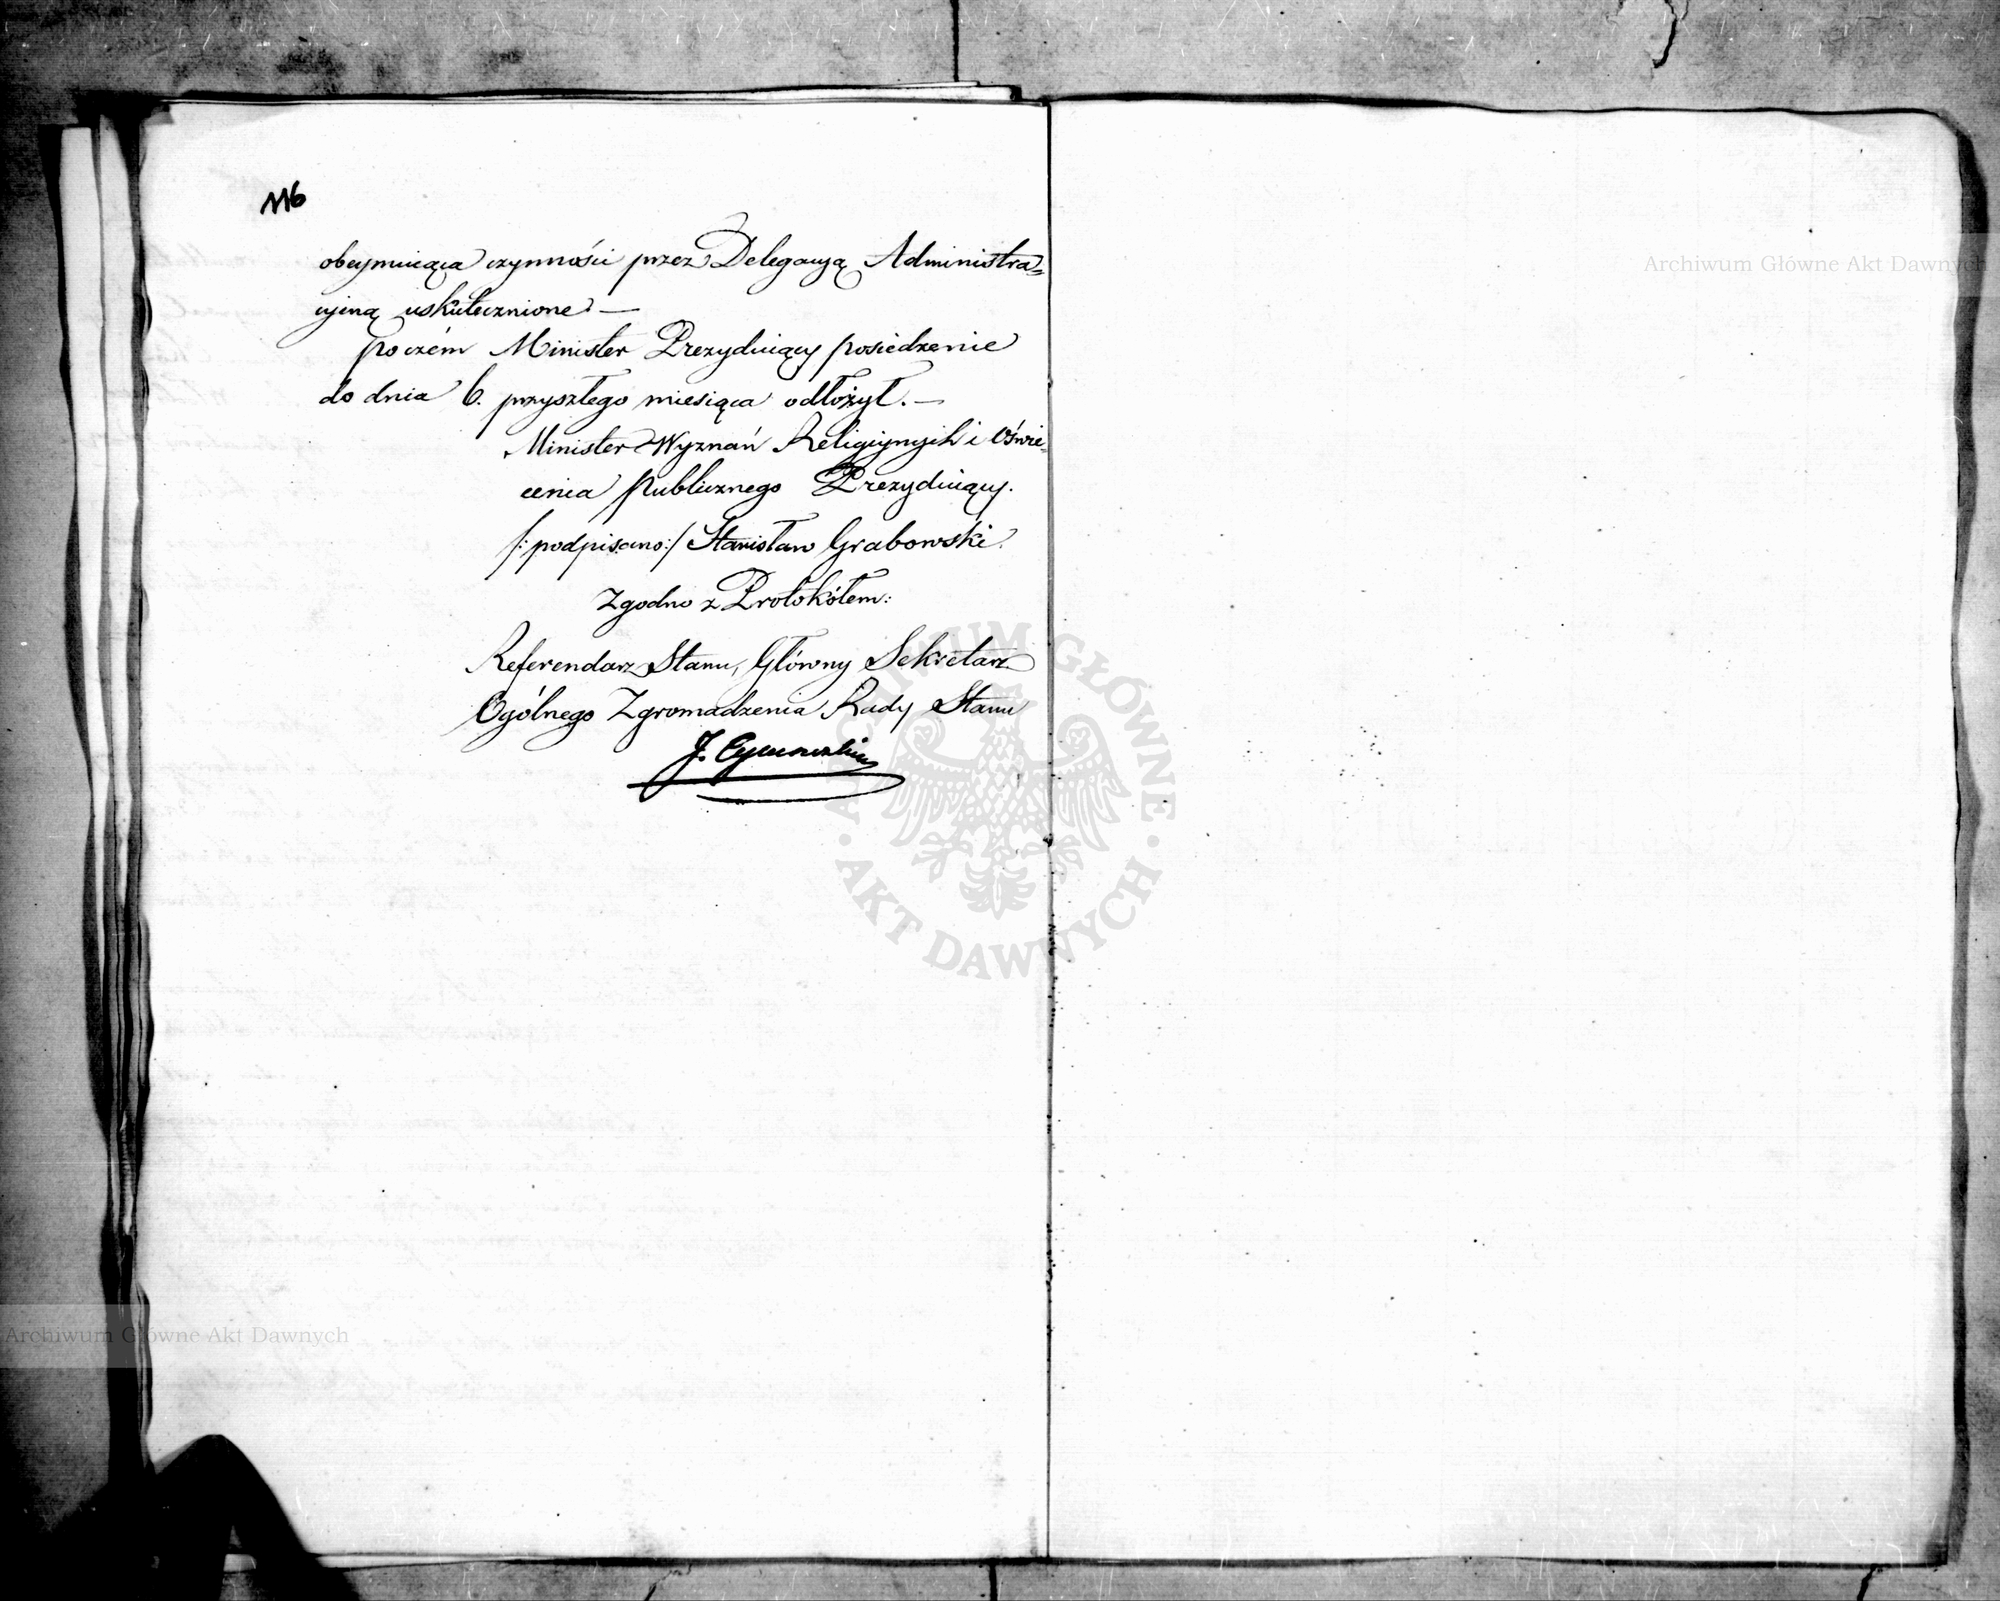 116
obeymuiąca czynności przez Delegacyą Administra=
cyiną uskutecznione. —
poczém Minister Prezyduiący posiedzenie
do dnia 6. przyszłego miesiąca odłożył. —
Minister Wyznań Religiynych i Oświe=
cenia Publicznego Prezyduiący.
/: podpisano :/ Stanisław Grabowski.
Zgodno z Protokółem:
Referendarz Stanu, Główny Sekretarz
Ogólnego Zgromadzenia Rady Stanu
J.
Archiwum Główne Akt Dawnych
ARCHIWUM GŁÓWNE
AKT DAWNYCH
Archiwum Główne Akt Dawnych